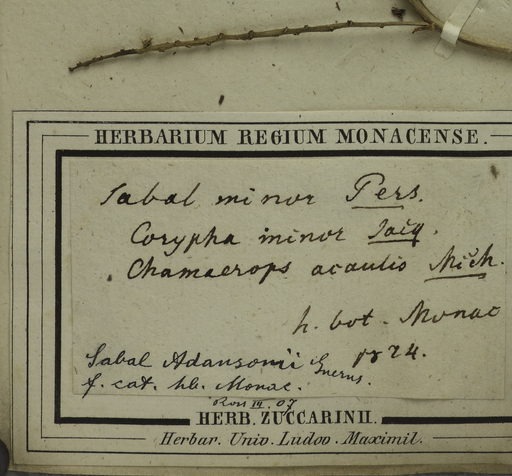 HERBARIUM REGIUM MONACENSE.
Sabal minor Pers.
Corypha minor Jacq.
Chamaerops acaulis Mich.
h. bot. Monac
1824.
Sabal Adansonii Guerns.
f. cat. hb. Monac.
Ross III. 07
HERB. ZUCCARINII.
Herbar. Univ. Ludov. Maximil.